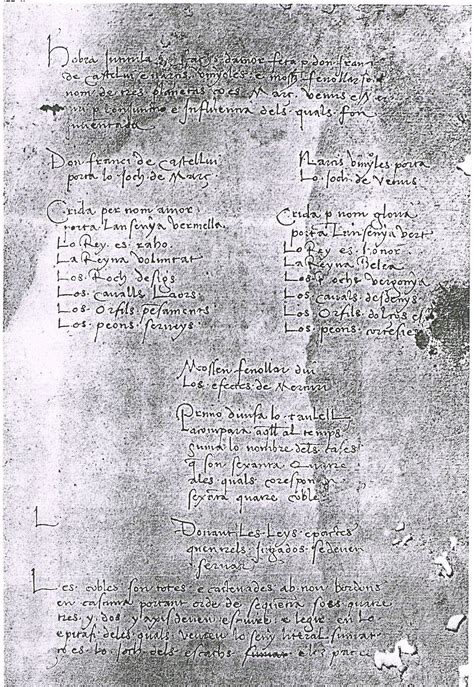 Hobra intitulada Scachs damor feta per don franci
de Castellvi e narcis vinyoles e mossen fenollar sots
nom de tres planetas ço es Març Venus e M
per conjunctio e influencia dels quals fon
inventada
Don frances de Castellvi
porta lo Joch de Març
Narcis vinyoles porta
Lo Joch de Venus
Crida per nom amor
porta Lansenya vermella
Lo Rey es raho
La Reyna voluntat
Los Roch desigs
Los cavalls Laors
Los Orfils pesaments
Los peons serveys
Crida p nom gloria
porta Lansenya vert
Lo Rey es honor
La Reyna Belea
Los Rochs vergonya
Los cavals desdenys
Los Orfils dolços
Los peons cortesies
Mossen fenollar diu
Los efectes de Mercuri
Primo divisa lo taulell
Lacompara aquell al temps
suma lo nombre dels cases
q son sexanta quatre
ales quals corespon
sexanta quatre cobles
L
Donant Les Leys e pactes
quentrels jugados se deven
servar
Les cobles son totes encadenades ab nou bordons
en cascuna portant orde de seguera fo es quatre
tres y dos y axi se deven escriure e legir en lo
epitafi dels quals veureu lo seny literal
es lo Joch dels escachs